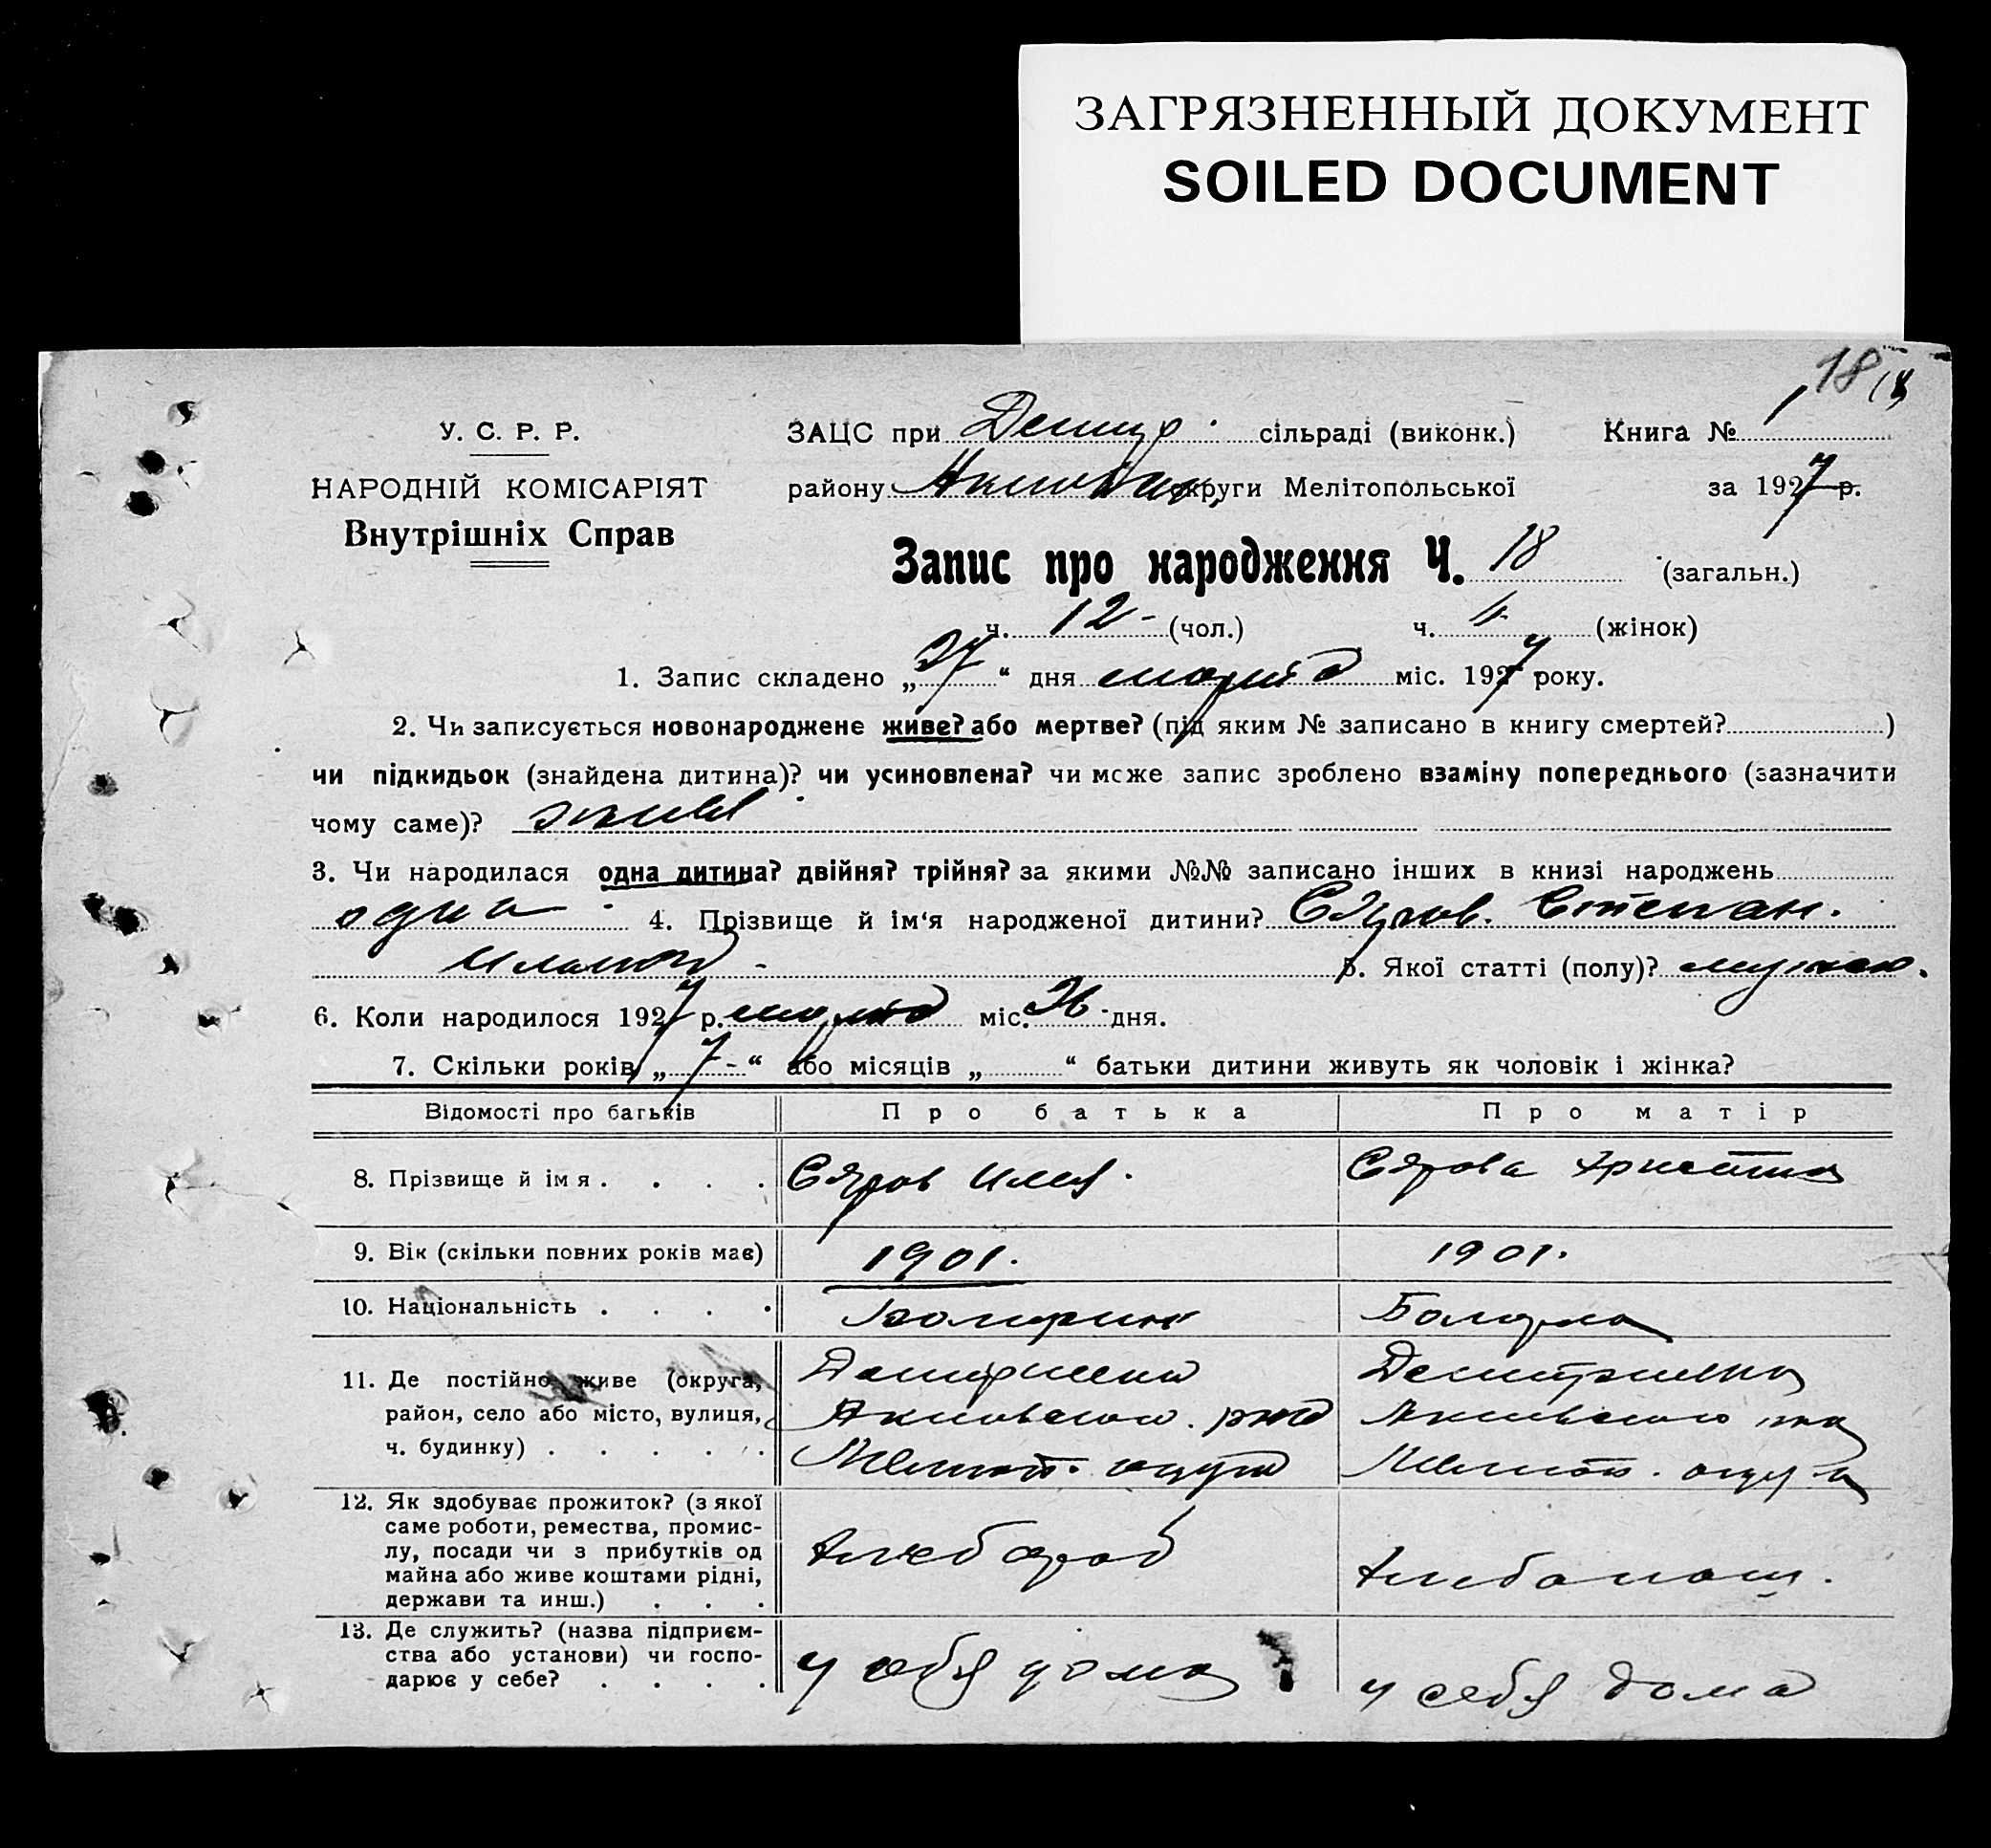 ЗАГРЯЗНЕННЫЙ ДОКУМЕНТ
SOILED DOCUMENT
18
У. С. Р. Р.
НАРОДНІЙ КОМІСАРІЯТ
Внутрішніх Справ
ЗАЦС при Демитр. сільраді (виконк.) Книга № 1
району округи Мелітопольської за 1927 р.
Запис про народження Ч. 18 (загальн.)
ч. 12 - (чол.) ч. (жінок)
1. Запис складено „27“ дня марта міс. 1927 року.
2. Чи записується новонароджене живе? або мертве? (під яким № записано в книгу смертей? )
чи підкидьок (знайдена дитина)? чи усиновлена? чи може запис зроблено взаміну попереднього (зазначити
чому саме)? живы
3. Чи народилася одна дитина? двійня? трійня? за якими №№ записано інших в книзі народжень
одна 4. Прізвище й ім‘я народженої дитини? Степан.
5. Якої статті (полу)?
6. Коли народилося 1927 р. марта міс. 26 дня.
7. Скільки років „7-“ або місяців „ “ батьки дитини живуть як чоловік і жінка?
Відомості про батьків Про батька Про матір
8. Прізвище й імя . . . . Илья.
9. Вік (скільки повних років має) 1901. 1901.
10. Національність . . . . Болгарин Болгарка
11. Де постійно живе (округа,
район, село або місто, вулиця,
ч. будинку) . . . . .
Акимовского Акимовского
Мелитоп. округа Мелитоп. округа
12. Як здобуває прожиток? (з якої
саме роботи, ремества, промис-
лу, посади чи з прибутків од
майна або живе коштами рідні,
держави та инш.) . . .
Хлебороб
13. Де служить? (назва підприєм-
ства або установи) чи госпо-
дарює у себе? . . . .
у себя дома у себя дома